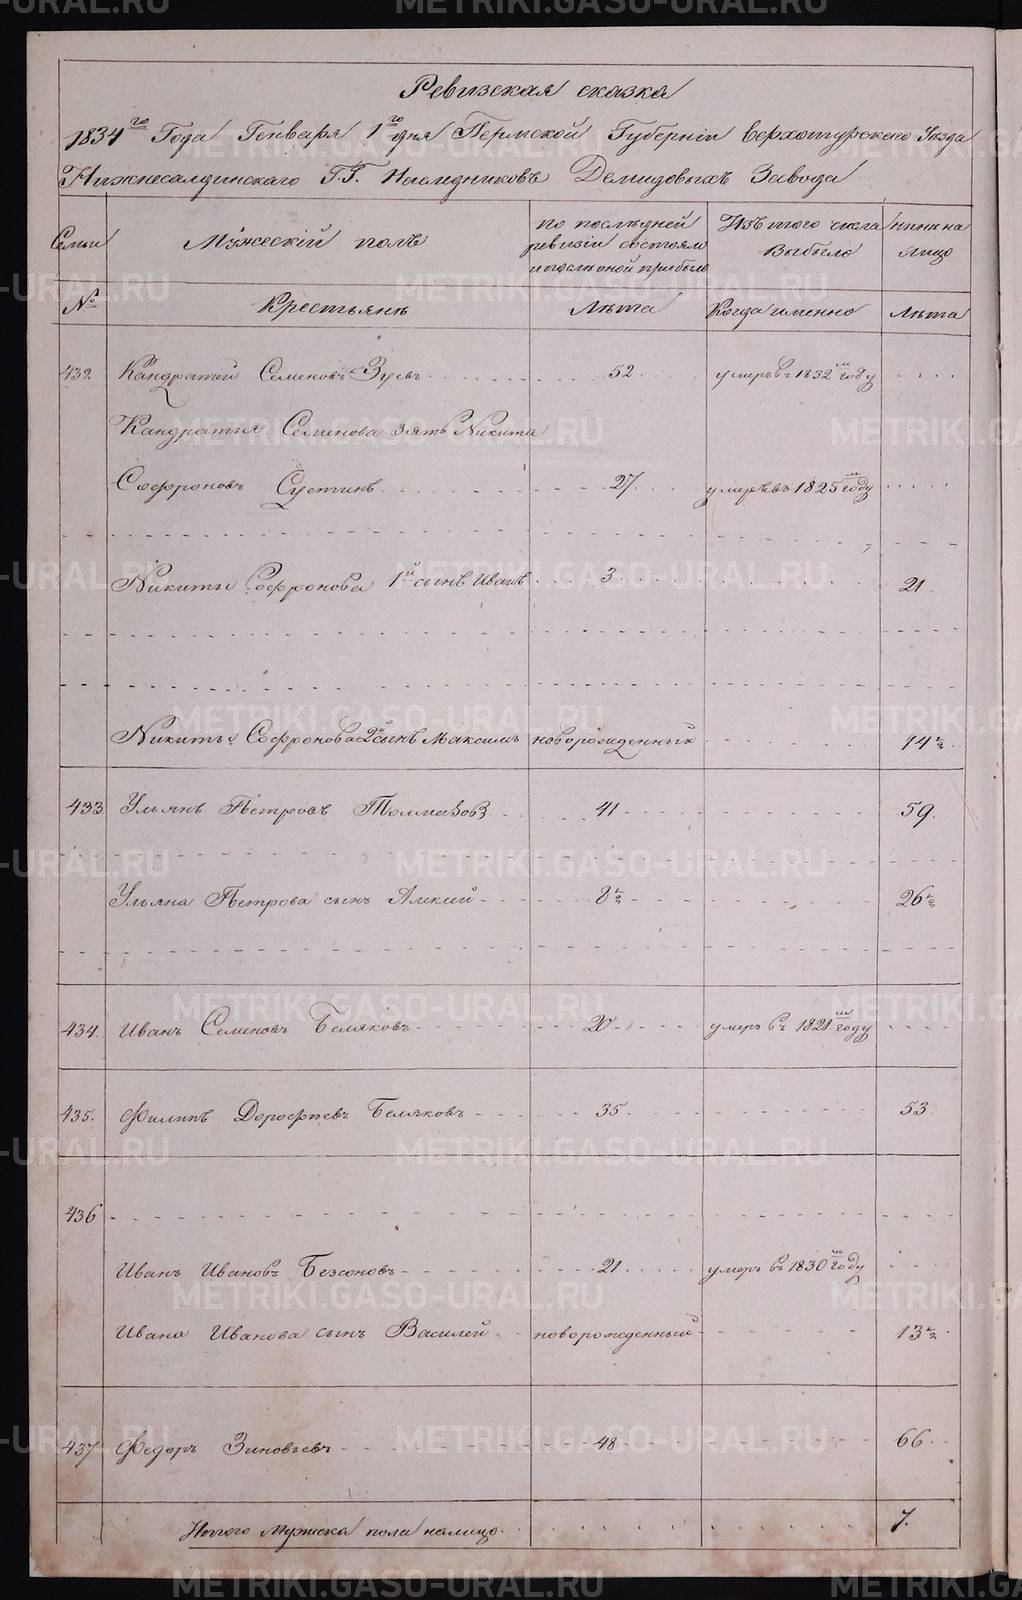 Ревизская сказка
1834го Года Генваря 1го дня Пермской Губернiи Верхотурскаго Уѣзда
Нижнесалдинскаго Г.Г. Наследниковъ Демидовыхъ Завода
Семьи Мужескiй полъ по последней ревизiи состояло и после оной прибыло Изъ того числа выбыло ныне на лицо
№ Крестьянѣ Лѣта Когда именно Лѣта
432 Кандратей Семеновъ Зуевъ 52 умеръ въ 1832м году
Кандратья Семенова зять Никита
Софроновъ Сустинъ 27 умеръ въ 1825м году
Никиты Софронова 1й сынъ Иванъ 3 21
Никиты Софронова 2й сынъ Максимъ новорожденный 14½
433 Ульянъ Петровъ Толмачовъ 41 59.
Ульяна Петрова сынъ Алексей 8½ 26½
434. Иванъ Семеновъ Беляковъ 20 умеръ въ 1821м году
435. Филипъ Дорофеевъ Беляковъ 35 53
436
Иванъ Ивановъ Безсоновъ 21 умеръ въ 1830м году
Ивана Иванова сынъ Василей новорожденный 13½
437 Федоръ Зиновьевъ 48 66
Иттого Мужеска пола налицо 7.
METRIKI.GASO-URAL.RU